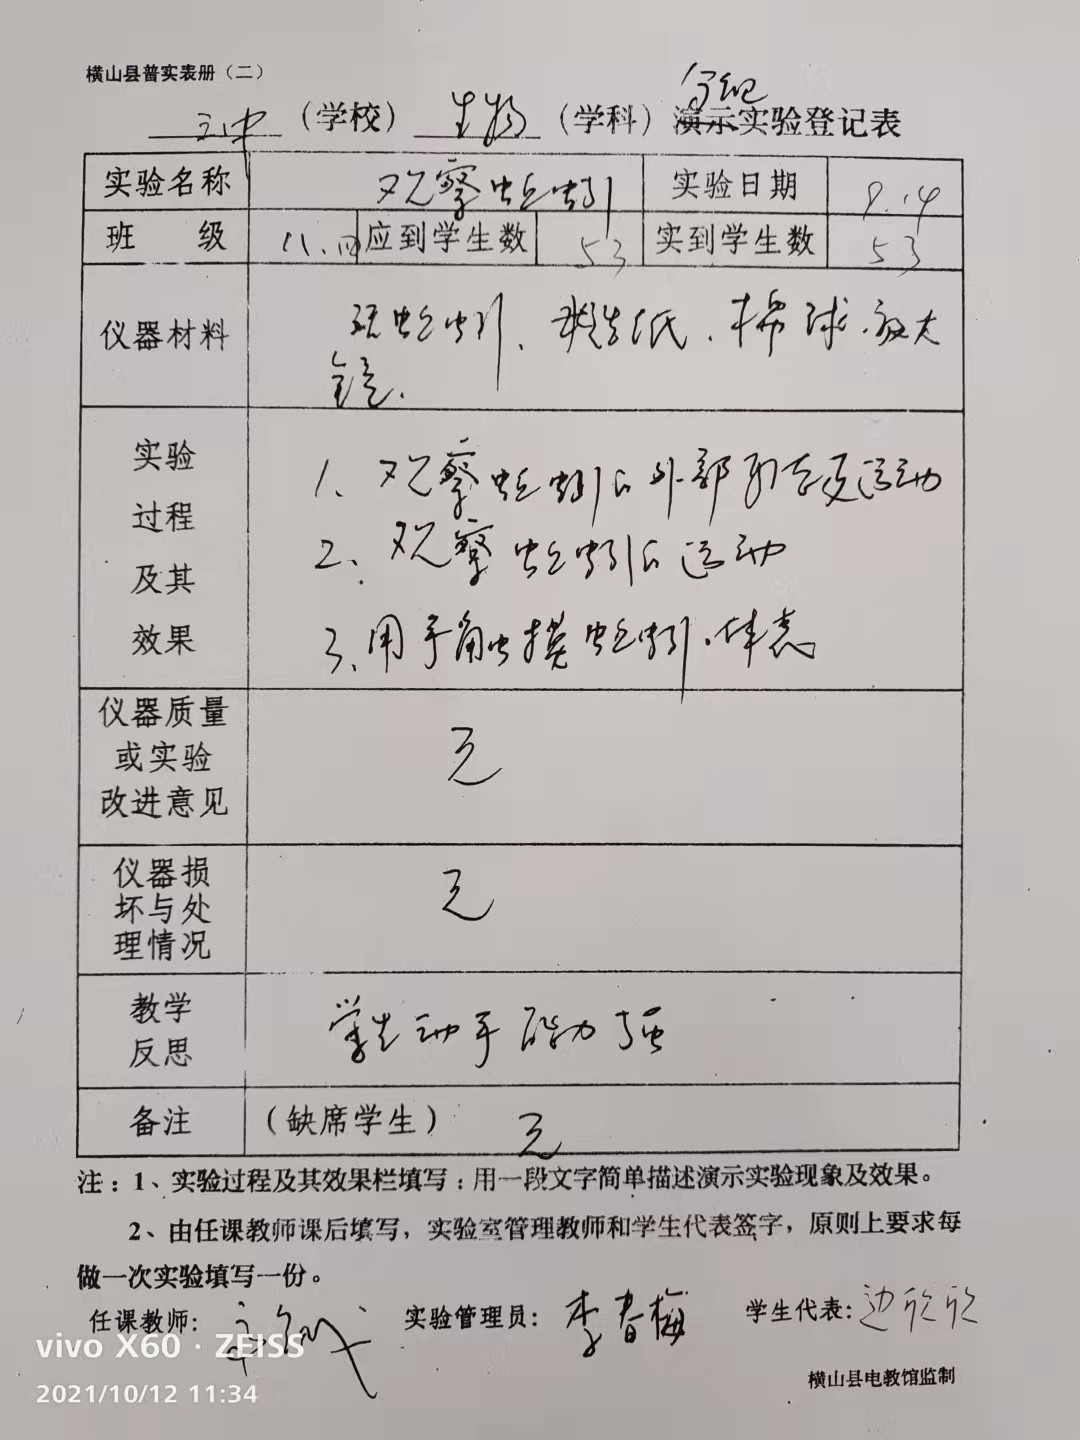 横山县普实表册（二）
（学校）生物（学科）演示实验登记表
分组
实验名称 观察蚯蚓 实验日期 9.14
班 级 八.四 应到学生数 53 实到学生数 53
仪器材料 活蚯蚓、糙纸、棉球、放大
镜.
实验
过程
及其
效果
1、观察蚯蚓的外部形态及运动
2、观察蚯蚓的运动
3、用手触摸蚯蚓、体表
仪器质量
或实验
改进意见
无
仪器损
坏与处
理情况
无
教学
反思
学生动手能力强
备注 （缺席学生） 无
注：1、实验过程及其效果栏填写：用一段文字简单描述演示实验现象及效果。
2、由任课教师课后填写，实验室管理教师和学生代表签字，原则上要求每
做一次实验填写一份。
任课教师： 实验管理员：李春梅 学生代表：边欣欣
横山县电教馆监制
vivo X60 · ZEISS
2021/10/12 11:34